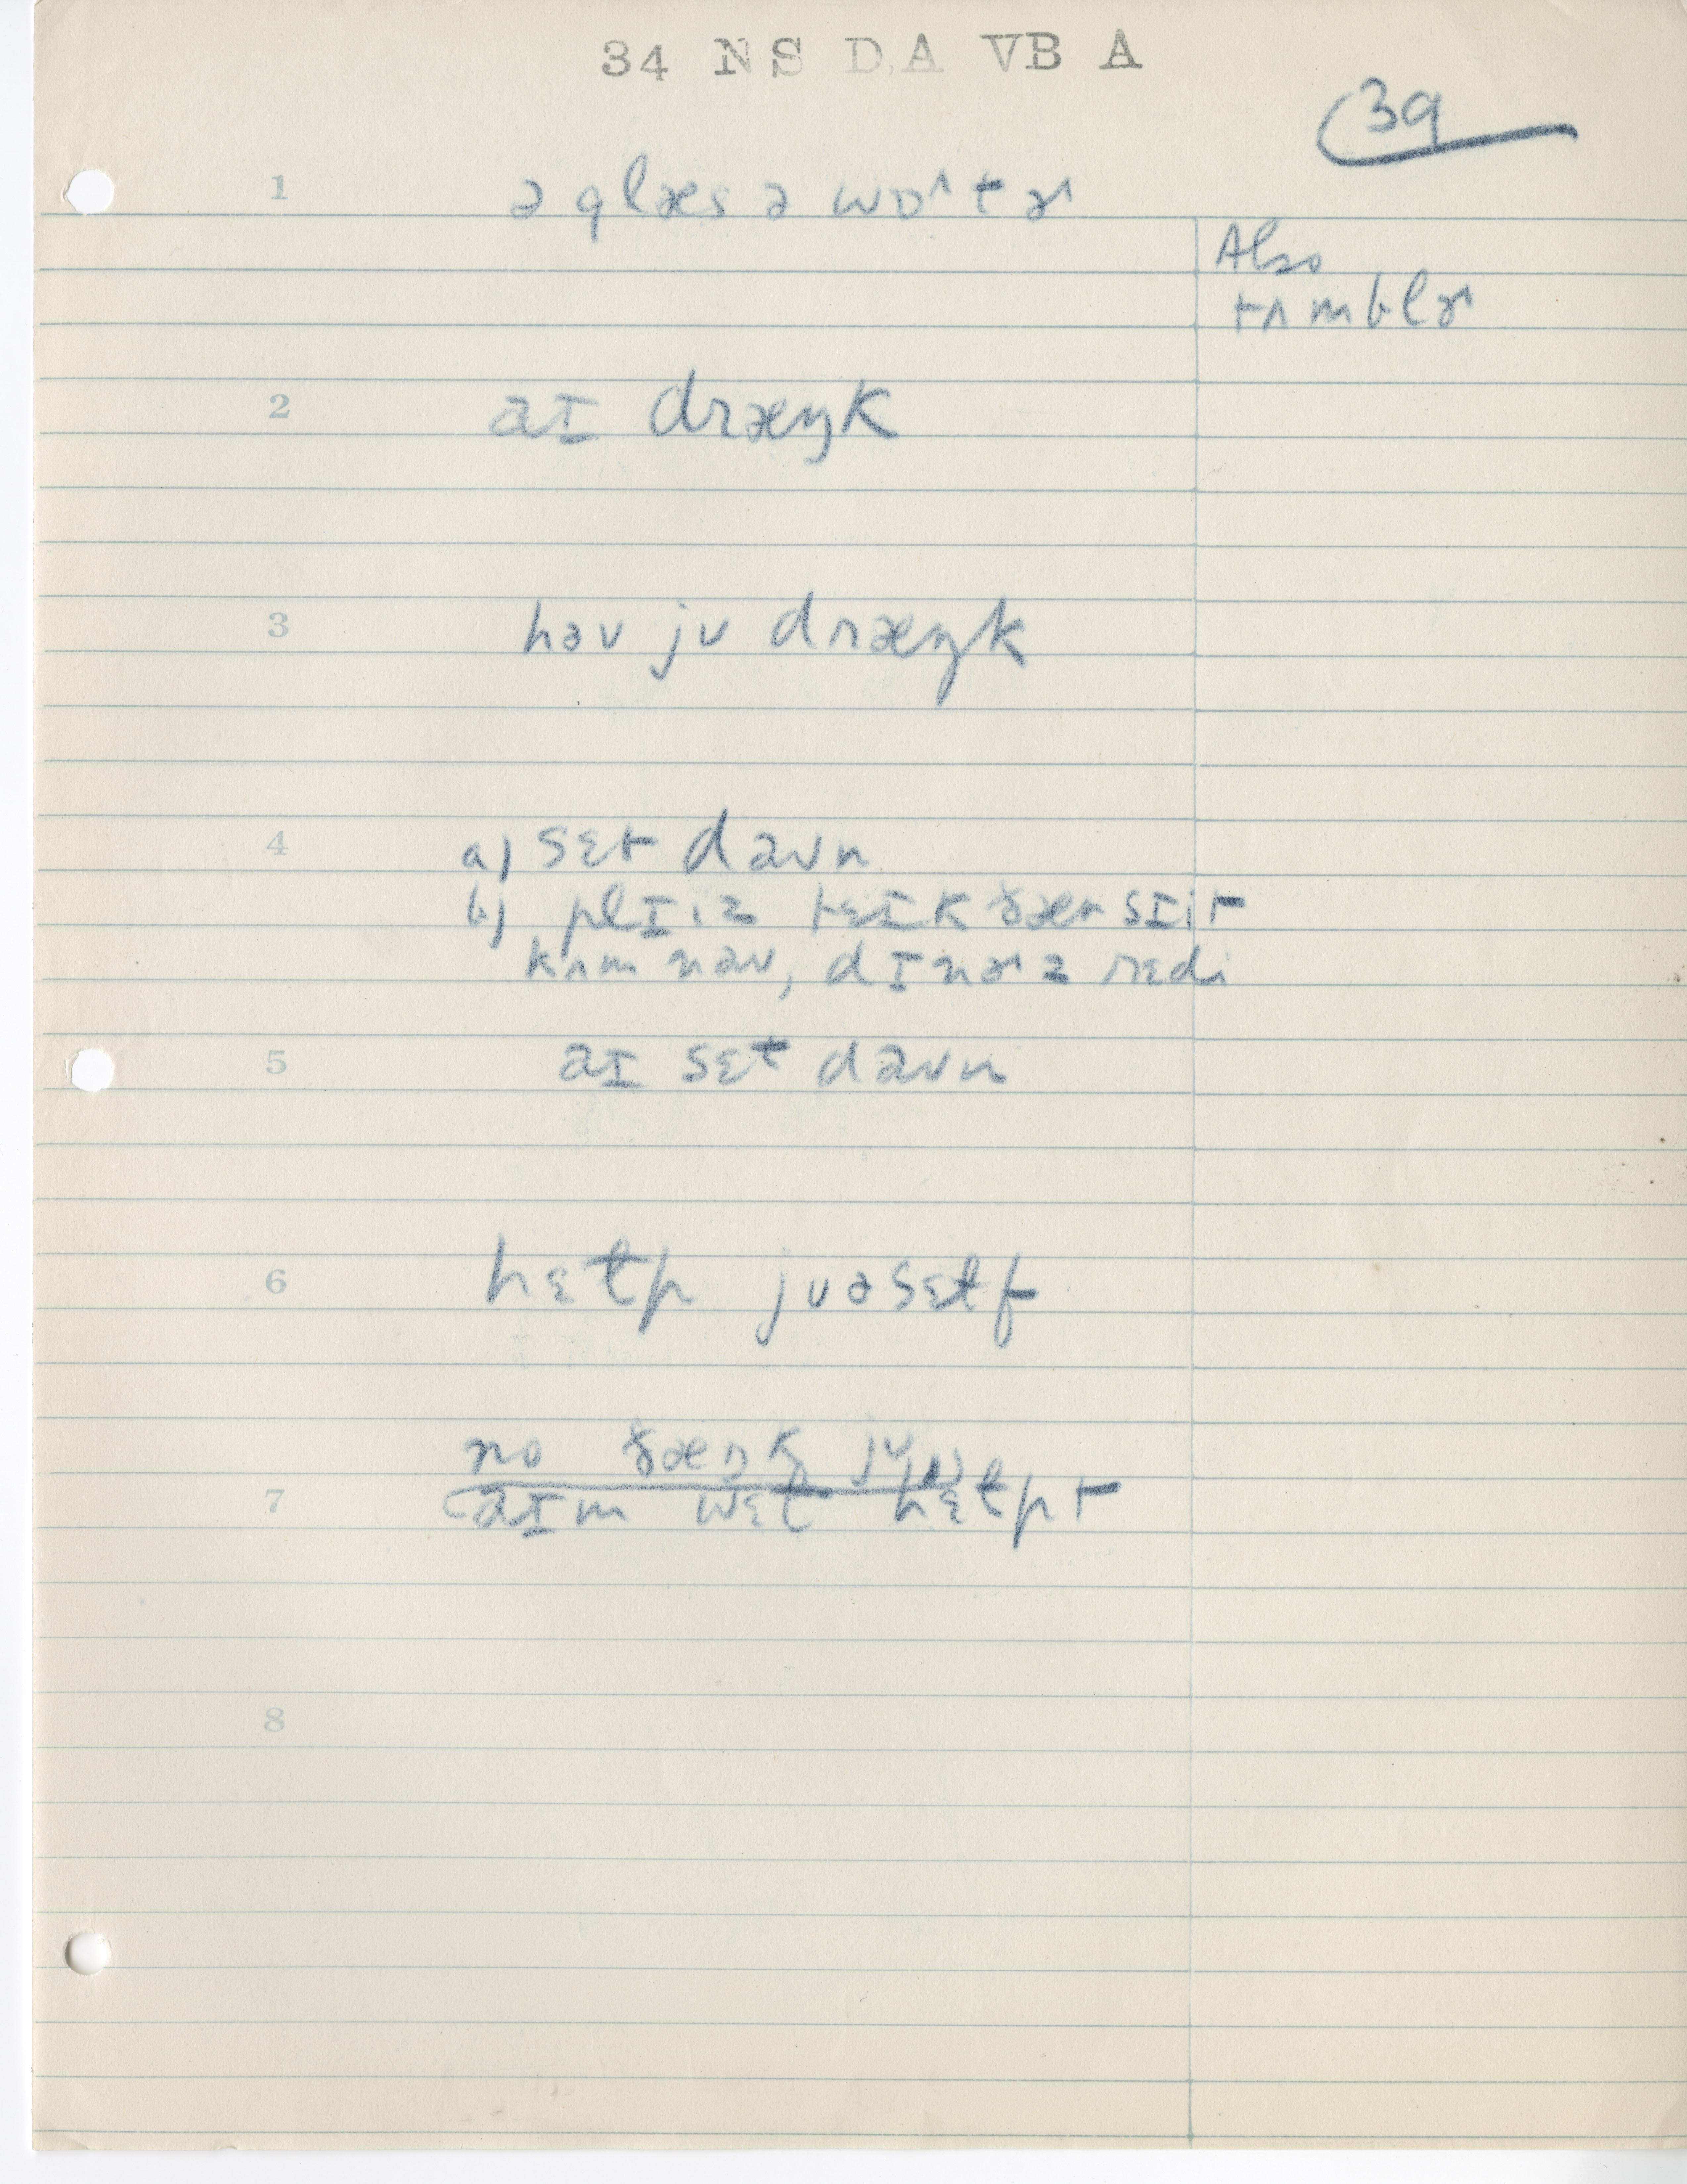 34 NS DA VB A
39
1 ə glæs ə wɒ˞tɚ
Also
tʌmblɚ
2 aɪ dræŋk
3 həv jʊ dræŋk
4 a) sɛt daʊn
b) plɪiz tɛɪk ðæt sɪit
kʌm naʊ, dɪnɚz rɛdi
5 aɪ sɛt daʊn
6 hɛɫp jʊəsɛɫf
no ðæŋk jʊ
7 aɪm wɛɫ hɛɫpt
8